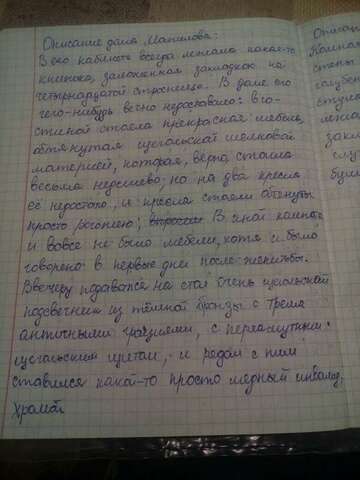 Описание дома Манилова:
В его кабинете всегда лежала какая-то
книжка, заложенная закладкою на
четырнадцатой странице. В доме его
чего-нибудь вечно недоставало: в го-
стиной стояла прекрасная мебель,
обтянутая щегольской шелковой
материей, которая, верно, стоила
весьма недешево; но на два кресла
её недостало, и кресла стояли обтянуты
просто рогожею; В иной комнате
и вовсе не было мебели, хотя и было
говорено в первые дни после женитьбы.
Ввечеру подавался на стол очень щегольской
подсвечник из тёмной бронзы с тремя
античными грациями, с перламутным
щегольским щитом, и рядом с ним
ставился какой-то просто медный инвалид,
хромой
Описан
Комна
стены
голубен
стула
лежа
зак
слу
бум